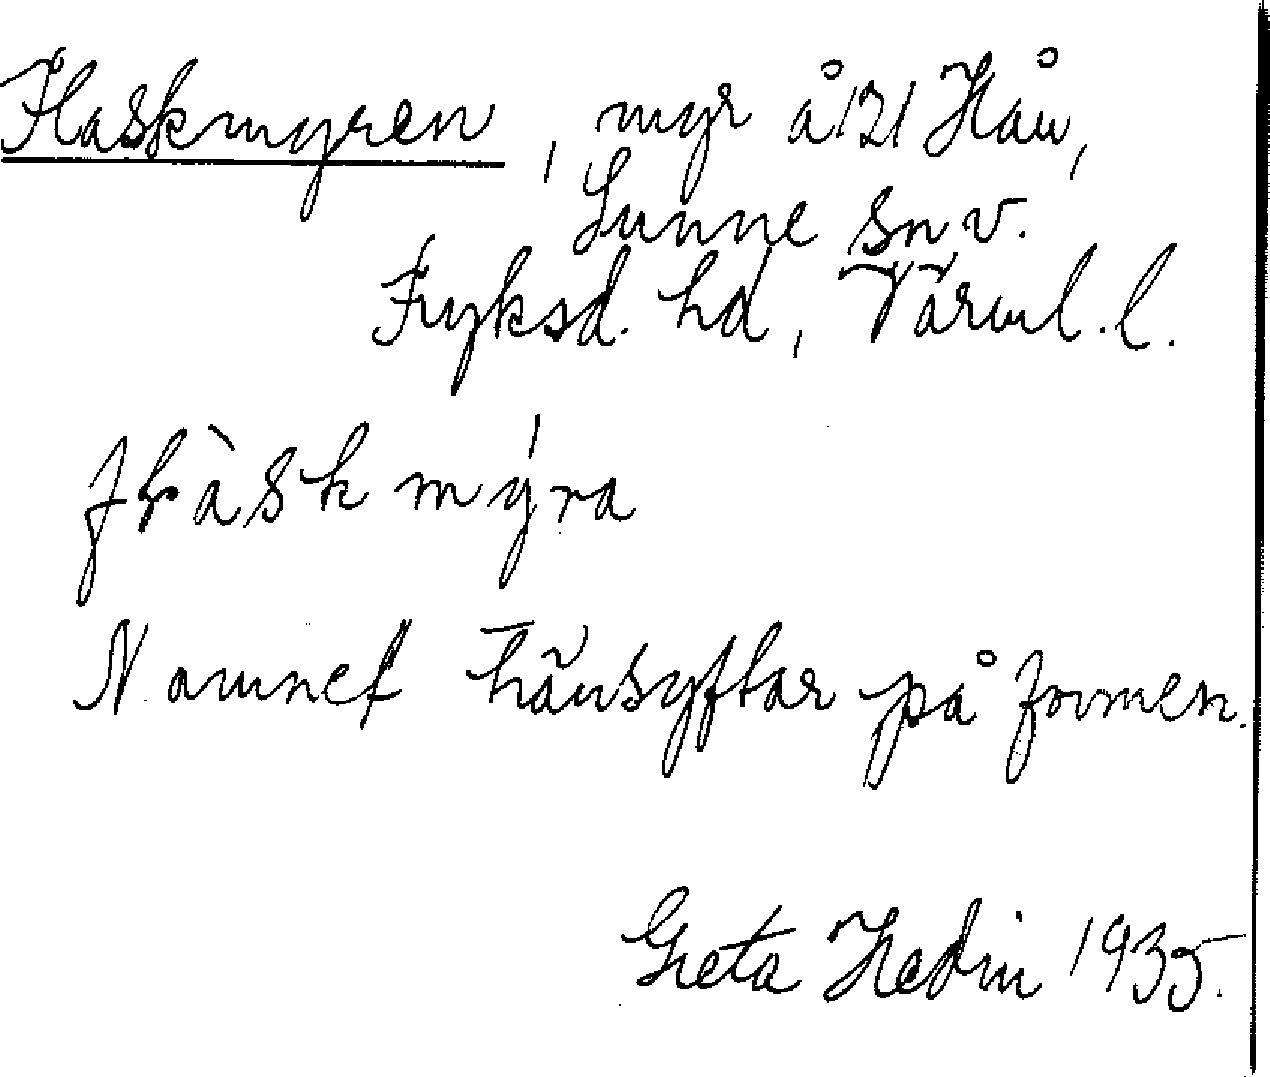 Flaskmyren, myr å 121 Hån,
Sunne sn v.
Fryksd. hd, Värml. l.
flàskmýra
Namnet hänsyftar på formen.
Greta Hedin 1935.